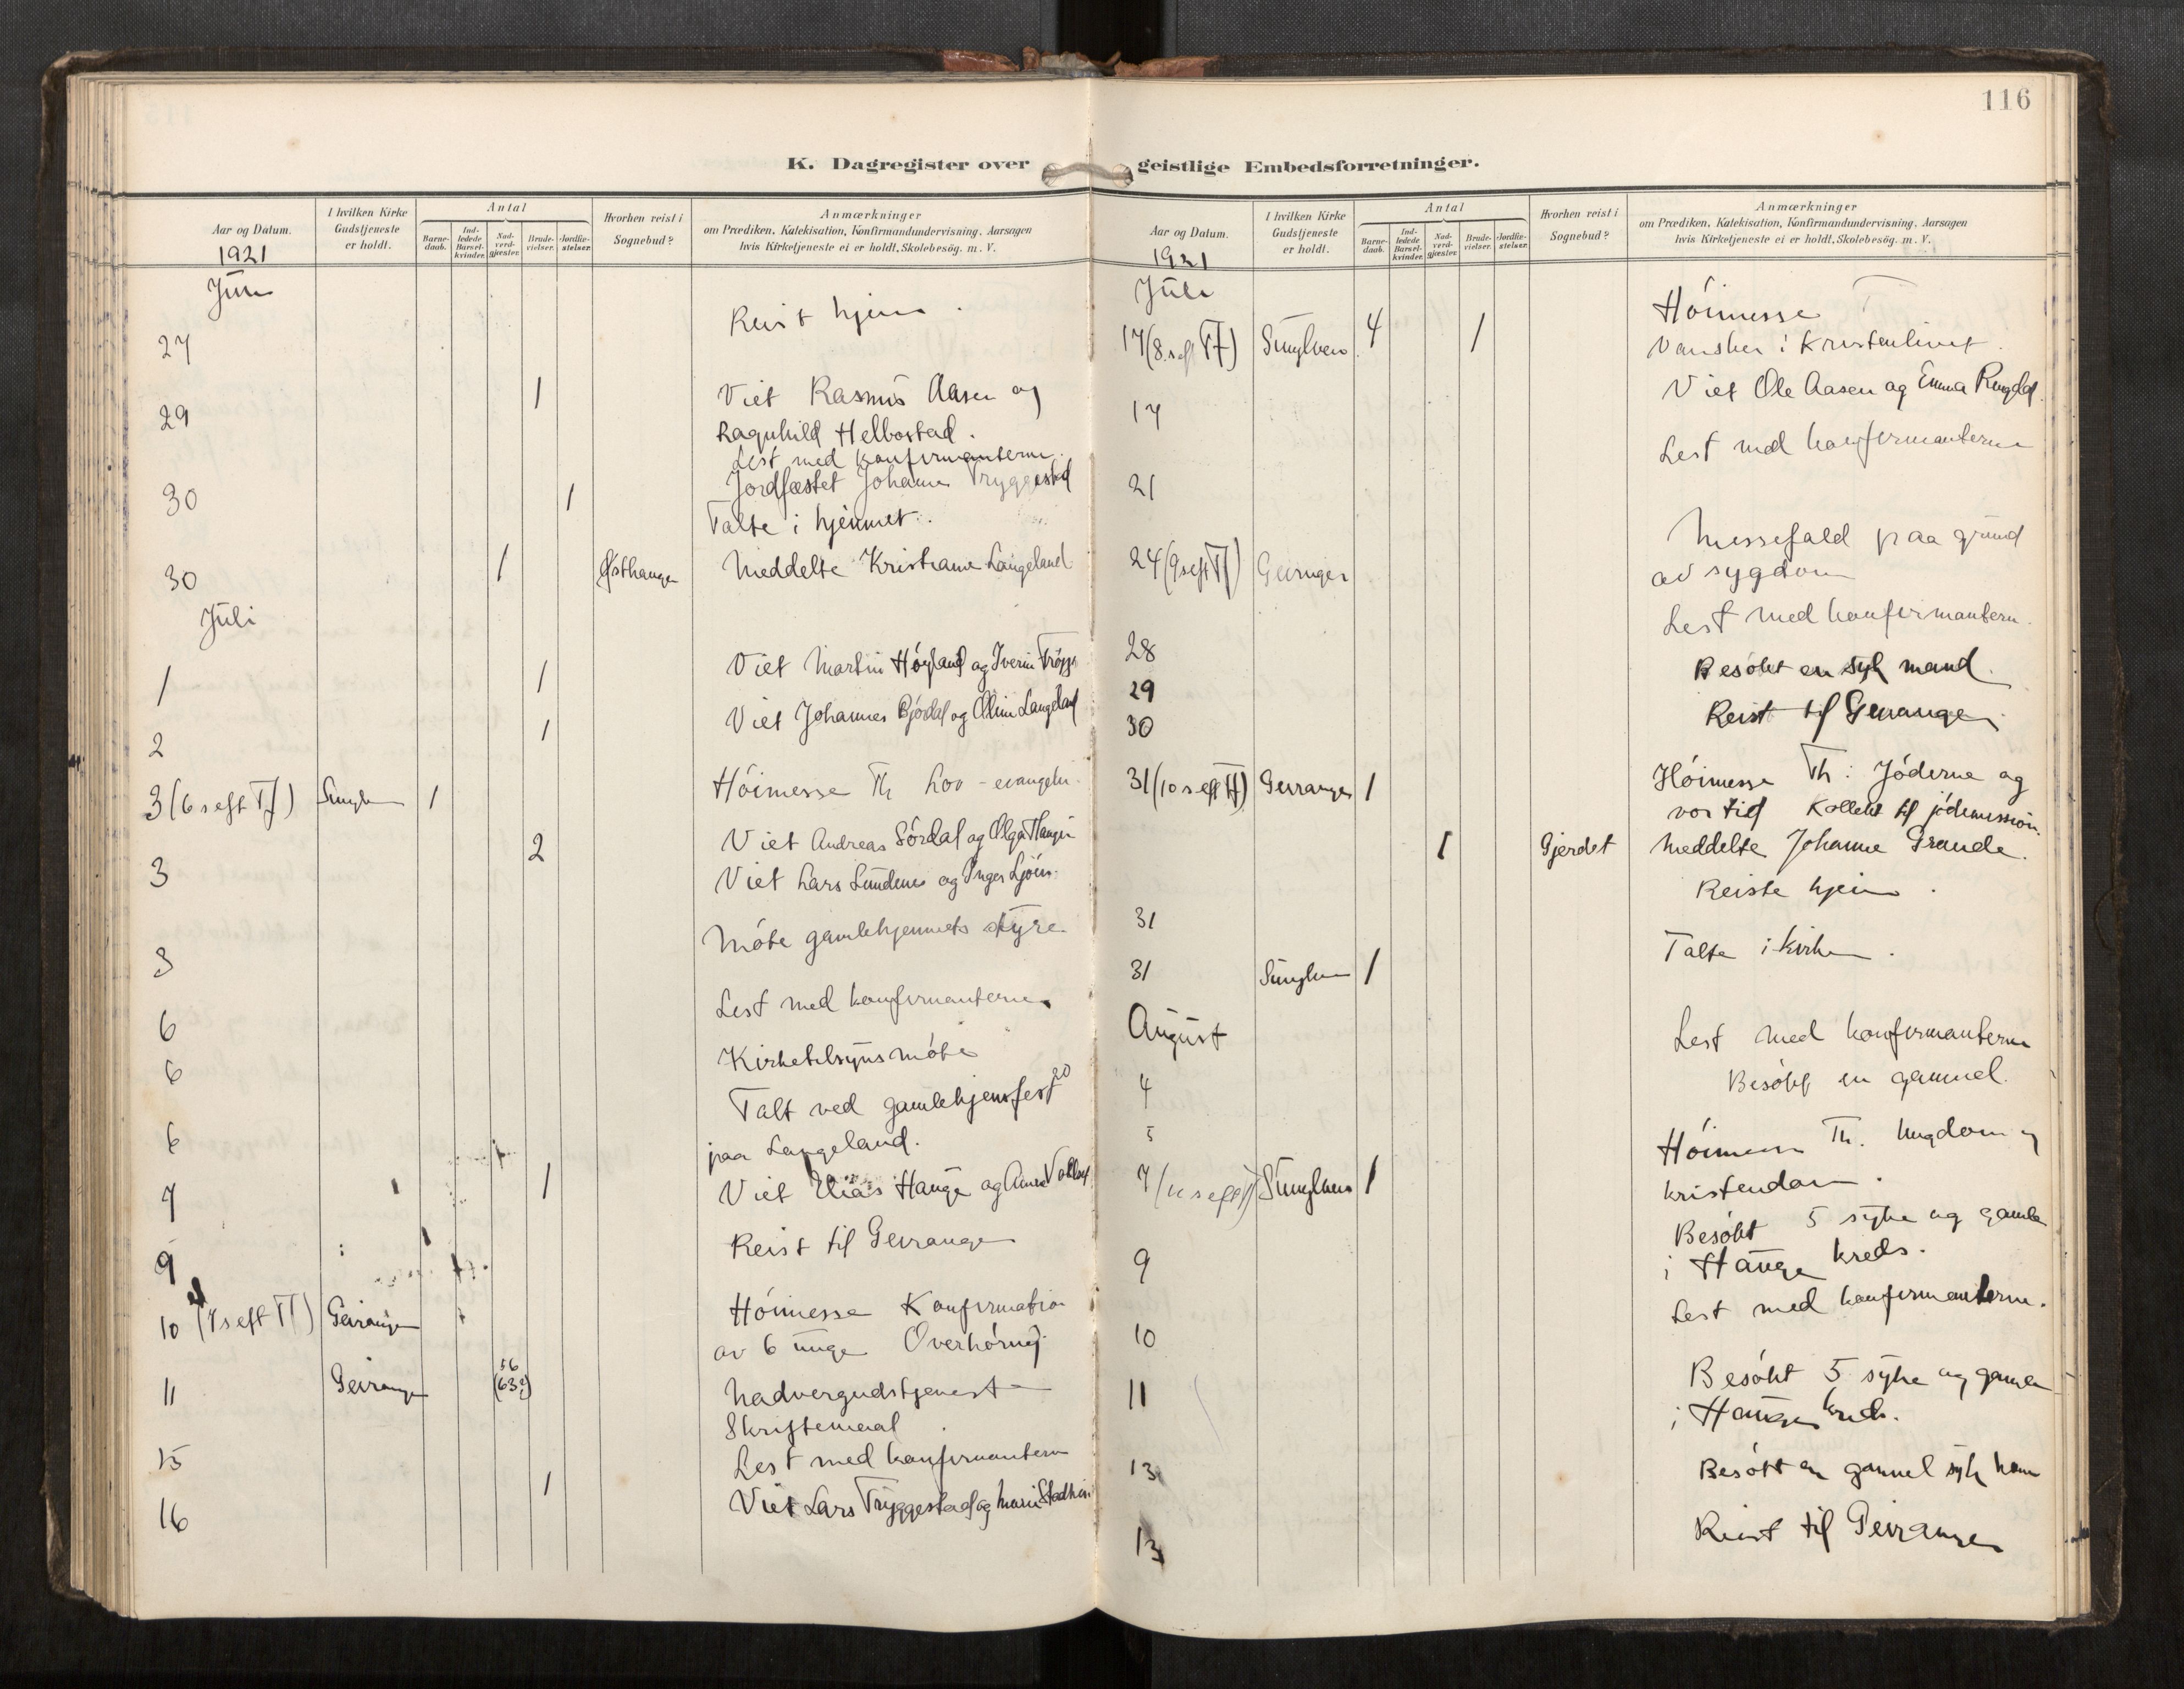 116
K. Dagregister over geistlige Embedsforretninger.
Aar og Datum.
I hvilken Kirke Gudstjeneste er holdt.
Antal
Barne-daab.
Ind-ledede Barsel-kvinder.
Nad-verd-gjæster.
Brude-vielser.
Jordfæ-stelser.
Hvorhen reist i Sognebud?
Anmærkninger
om Prædiken, Katekisation, Konfirmandundervisning, Aarsagen
hvis Kirketjeneste ei er holdt, Skolebesøg. m. V.
1921
Juni
27 Reist hjem.
29 1 Viet Rasmus Aasen og
Ragnhild Hellostad.
Lest med konfirmanterne.
30 1 Jordfæstet Johanne Tryggestad
Talte i hjemmet.
30 1 Østhauge Meddelte Kristianne Langeland
Juli
1 1 Viet Martin Høyland og Iverine
2 1 Viet Johannes Bjørdal og Oline Langeland
3 (6 s eft Tf) Sunylven 1 Høimesse Th Lov - evangeli
3 2 Viet Andreas Sørdal og Olga Haugen
Viet Lars Sundnes og Inger Ljøen
3 Møte gamlehjemmets styre
6 Lest med konfirmanterne
6 Kirketilsynsmøte
6 Talt ved gamlehjemsfest
paa Langeland.
7 1 Viet Elias Hauge og Anna
9 Reist til Geiranger
10 (7 s eft Tf) Geiranger Høimesse Konfirmation
av 6 unge Overhøring
11 Geiranger 56 (63?) Nadvergudstjeneste
Skriftemaal
15 Lest med konfirmanterne
16 1 Viet Lars Tryggestad og Marie Stadheim
Aar og Datum.
I hvilken Kirke Gudstjeneste er holdt.
Antal
Barne-daab.
Ind-ledede Barsel-kvinder.
Nad-verd-gjæster.
Brude-vielser.
Jordfæ-stelser.
Hvorhen reist i Sognebud?
Anmærkninger
om Prædiken, Katekisation, Konfirmandundervisning, Aarsagen
hvis Kirketjeneste ei er holdt, Skolebesøg. m. V.
1921
Juli
Høimesse
17 (8. s eft Tf) Sunylven 4 1 Vansker i Kristenlivet.
Viet Ole Aasen og Emma Ringdal.
17
Lest med konfirmanterne
21
Messefald paa grund
24 (9 s eft Tf) Geiranger av sygdom
Lest med konfirmantern.
28
Besøkt en syk mand.
29
Reist til Geiranger.
30
31 (10 s eft Tf) Geiranger 1 Høimesse Th: Jøderne og
vor tid Kollekt til jødemission.
1 Gjerdet Meddelte Johanne Grande.
Reiste hjem.
31
Talte i kirken.
31 Sunylven 1
August
Lest med konfirmanterne
Besøkt en gammel.
4
5
Høimesse Th. Ungdom og
7 (11 s eft Tf) Sunylven 1 kristendom.
Besøkt 5 syke og gamle
9 i Hauge kreds.
Lest med konfirmanterne.
10
Besøkt 5 syke og gamle
11 i Hauge kreds.
13 Besøkt en gammel syk kone
13 Reist til Geiranger